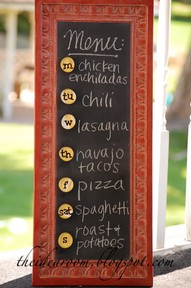 Menu:
m chicken
enchiladas
tu chili
w lasagna
th navajo
tacos
f pizza
sat spaghetti
s roast &
potatoes
theidearoom.blogspot.com